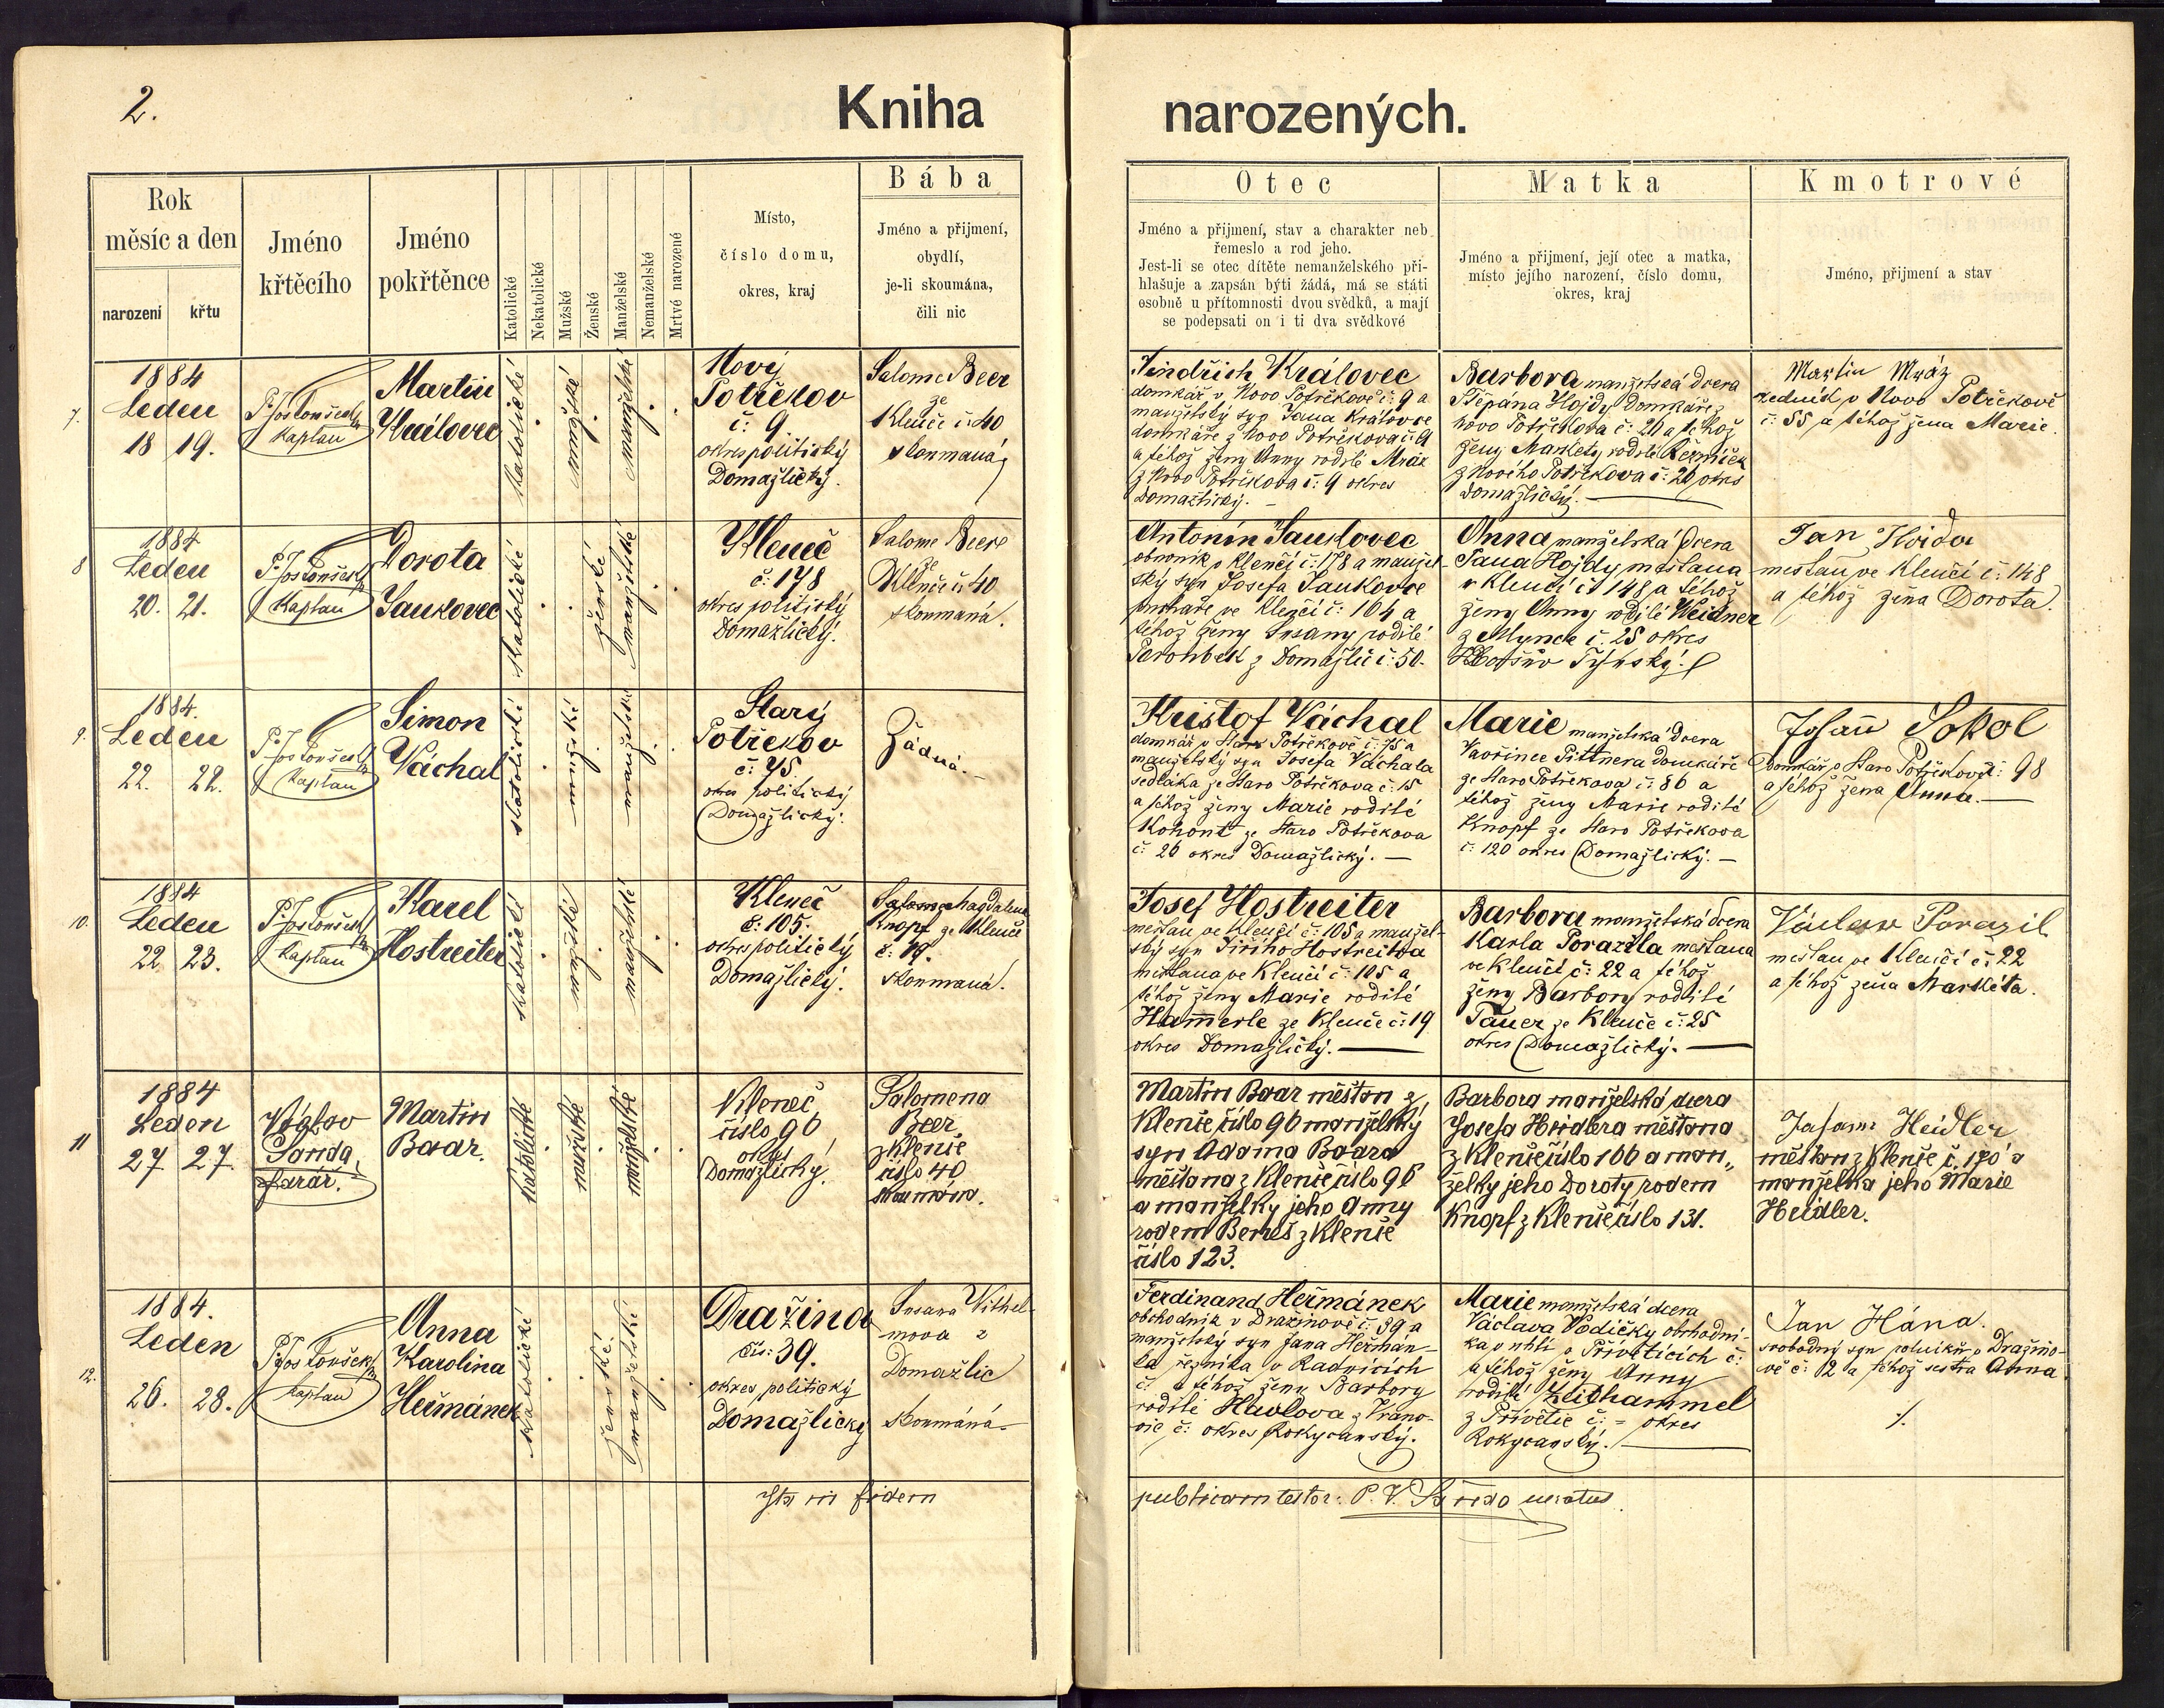 2.
Kniha narozených.
Rok
měsíc a den
narození
křtu
Jméno
křtěcího
Jméno
pokřtěnce
Katolické
Nekatolické
Mužské
Ženské
Manželské
Nemanželské
Mrtvé narozené
Místo,
číslo domu,
okres, kraj
Bába
Jméno a přijmení,
obydlí,
je-li skoumána,
čili nic
Otec
Jméno a přijmení, stav a charakter neb
řemeslo a rod jeho.
Jest-li se otec dítěte nemanželského při-
hlašuje a zapsán býti žádá, má se státi
esobně u přítomnosti dvou svědků, a mají
se podepsati on i ti dva svědkové
Matka
Jméno a přijmení, její otec a matka,
místo jejího narození, číslo domu,
okres, kraj
Kmotrové
Jméno, přijmení a stav
7.
1884
Leden
18 19.
Kaplan
Martin
Královec
katolické
manželské
Nový
Potřekov
č: 9
okres politický
Domažlický.
Salome Beer
ze
Klenče č: 40
skoumaná
Jindřich Královec
domkář v Novo Potřekově č: 9 a
manželský syn Jana Královce
domkáře z Novo Potřekova č: 9
a téhož ženy Anny rodilé Mráz
z Novo Potřekova č: 9 okres
Domažlický.
Barbora manželská dcera
Štěpána Hojdy domkáře z
Novo Potřekova č: 20 a téhož
ženy Markety rodilé Řezníček
z Nového Potřekova č: 20 okres
Domažlický.
Martin Mráz
zedník v Novo Potřekově
č: 55 a téhož žena Marie.
8
1884
Leden
20. 21.
Kaplan
Dorota
Jankovec
katolické
ženské
manželské
Kleneč
č: 178
okres politický
Domažlický.
Salome Beer
ze
Klenče č: 40
skoumaná.
Antonín Jankovec
v Klenčí č: 178 a manžel-
ský syn Josefa Jankovce
ve Klenčí č: 164 a
téhož ženy Susany rodilé
z Domažlic č: 50.
Anna manželská dcera
Jana Hojdy mešťana
v Klenčí č: 148 a téhož
ženy Anny rodilé Weidner
č. 25 okres
Jan Hojda
mešťan ve Klenčí č: 148
a téhož žena Dorota.
9.
1884.
Leden
22. 22.
Kaplan
Simon
Váchal
katolické
mužské
manželské
Starý
Potřekov
č: 75.
okres politický
Domažlický.
Žádná.
Kristof Váchal
domkář v Staro Potřekově č: 75 a
manželský syn Josefa Váchala
sedláka ze Staro Potřekova č: 15
a téhož ženy Marie rodilé
Kohout ze Staro Potřekova
č: 26 okres Domažlický.
Marie manželská dcera
Vavřince Pittnera domkáře
ze Staro Potřekova č: 86 a
téhož ženy Marie rodilé
Knopf ze Staro Potřekova
č: 120 okres Domažlický.
Johan Sokol
Domkář v Staro Potřekově č: 98
a téhož žena Anna.
10.
1884
Leden
22 23.
Kaplan
Karel
Hostreiter
katolické
mužské
manželské
Kleneč
č: 105.
okres politický
Domažlický.
Magdalena
Knopf ze Klenče
č: 19.
skoumaná.
Josef Hostreiter
mešťan ve Klenčí č: 105 a manžel-
ský syn Jiřího Hostreitra
mešťana ve Klenčí č: 105 a
téhož ženy Marie rodilé
Hammerle ze Klenče č: 19
okres Domažlický.
Barbora manželská dcera
Karla Porazila mešťana
ve Klenčí č: 22 a téhož
ženy Barbory rodilé
Tauer ze Klenče č: 25
okres Domažlický.
Václav Porazil
mešťan ve Klenčí č: 22
a téhož žena Markéta.
11
1884
Leden
27 27.
farář.
Martin
Baar.
katolické
mužské
manželské
Kleneč
číslo 96
okres
Domažlický.
Salomena
Beer
z Klenče
číslo 40
skoumána.
Martin Baar měšťan z
Klenče číslo 96 manželský
syn Adama Baara
měšťana z Klenče číslo 96
a manželky jeho Anny
rodem Bereš z Klenče
číslo 123.
Barbora manželská dcera
Josefa Heidlera měšťana
z Klenče číslo 166 a man„
želky jeho Doroty rodem
Knopf z Klenče číslo 131.
Johann Heidler
měšťan z Klenče č. 170 a
manželka jeho Marie
Heidler.
12.
1884.
Leden
26. 28.
Kaplan
Anna
Karolina
Heřmánek
katolické
ženské
manželské
Dražinov
čís: 39.
okres politický
Domažlický
Susana Withel-
mova z
Domažlic
skoumáná
Ferdinand Heřmánek
obchodník v Dražinově č: 39 a
manželský syn Jana Heřmán-
ka řezníka v Radnicích
č: a téhož ženy Barbory
rodilé Havlova z Vrano-
vic č: okres Rokycanský.
Marie manželská dcera
Václava Vodičky obchodní-
ka v uhlí v Přivěticích č:
a téhož ženy Anny
rodilé
z Přivětic č: - okres
Rokycanský.
Jan Hána.
svobodný syn v Dražino-
vě č: 12 a téhož sestra Anna
Ita in fidem publicam testor: P. V.